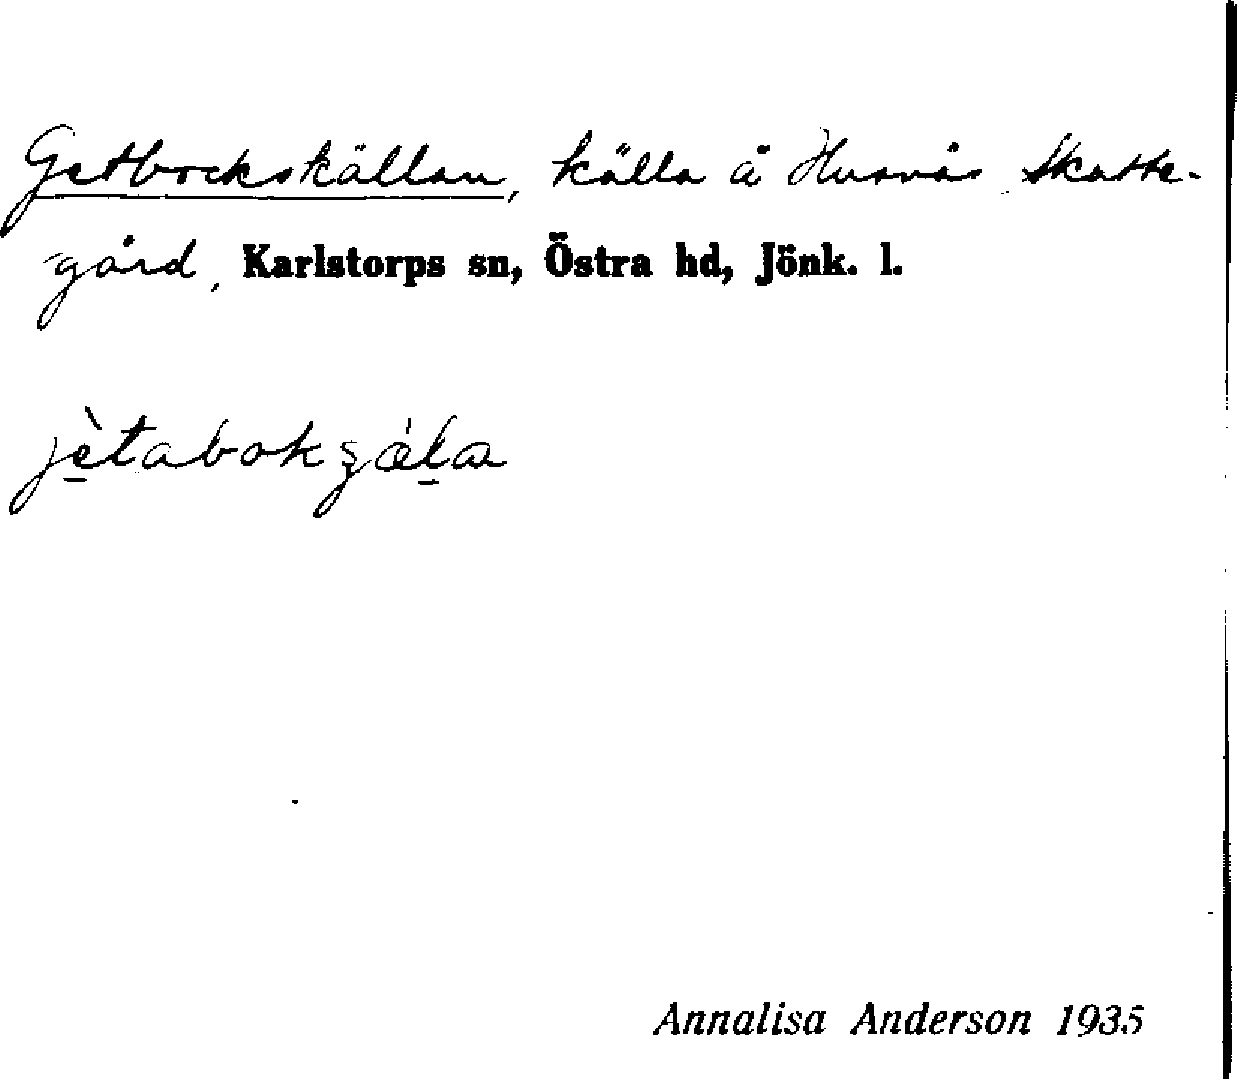 Getbockskällan, källa å Husnäs Skatte-
gård, Karlstorps sn, Östra hd, Jönk. l.
jètabokʂǽla
Annalisa Anderson 1935